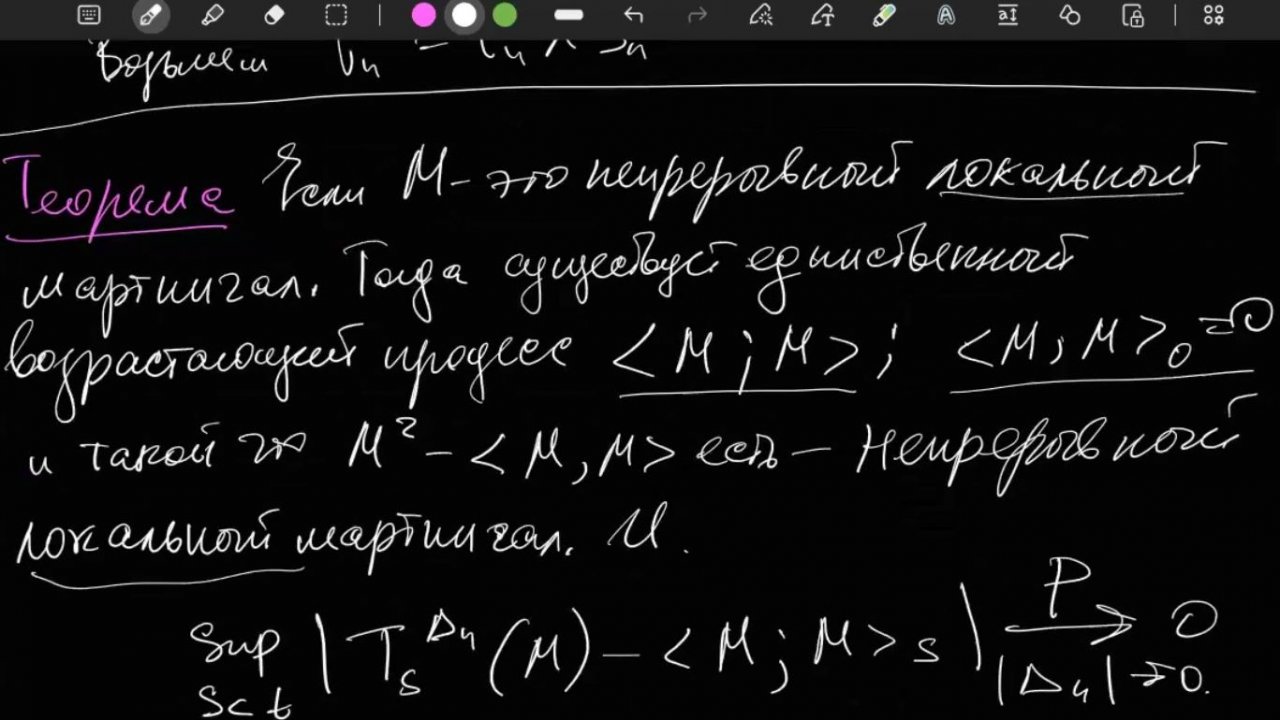 Возьмем
Теорема Если M - это непрерывный локальный
мартингал. Тогда существует единственный
возрастающий процесс <M;M>; <M,M>₀=0
и такой что M² - <M,M> есть - непрерывный
локальный мартингал. И.
sup | T_s^{Δn} (M) - <M;M>s | P→ 0
s≤t |Δn|→0.